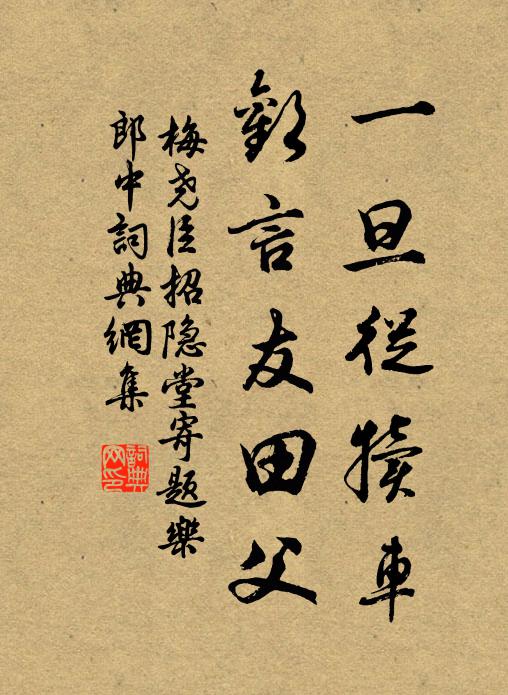 一旦從犢車
歡言友田父
梅堯臣招隐堂寄題樂
郎中詞典網集
詞典网印